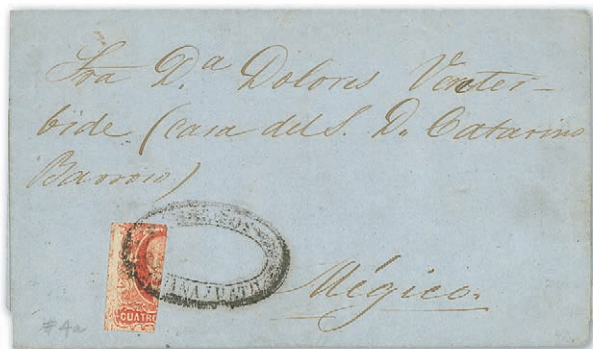 Sra D.ª Dolores Yturbide
bide (casa del S. D. Catarino
Barroso)
Mégico.
CUATRO
#4a